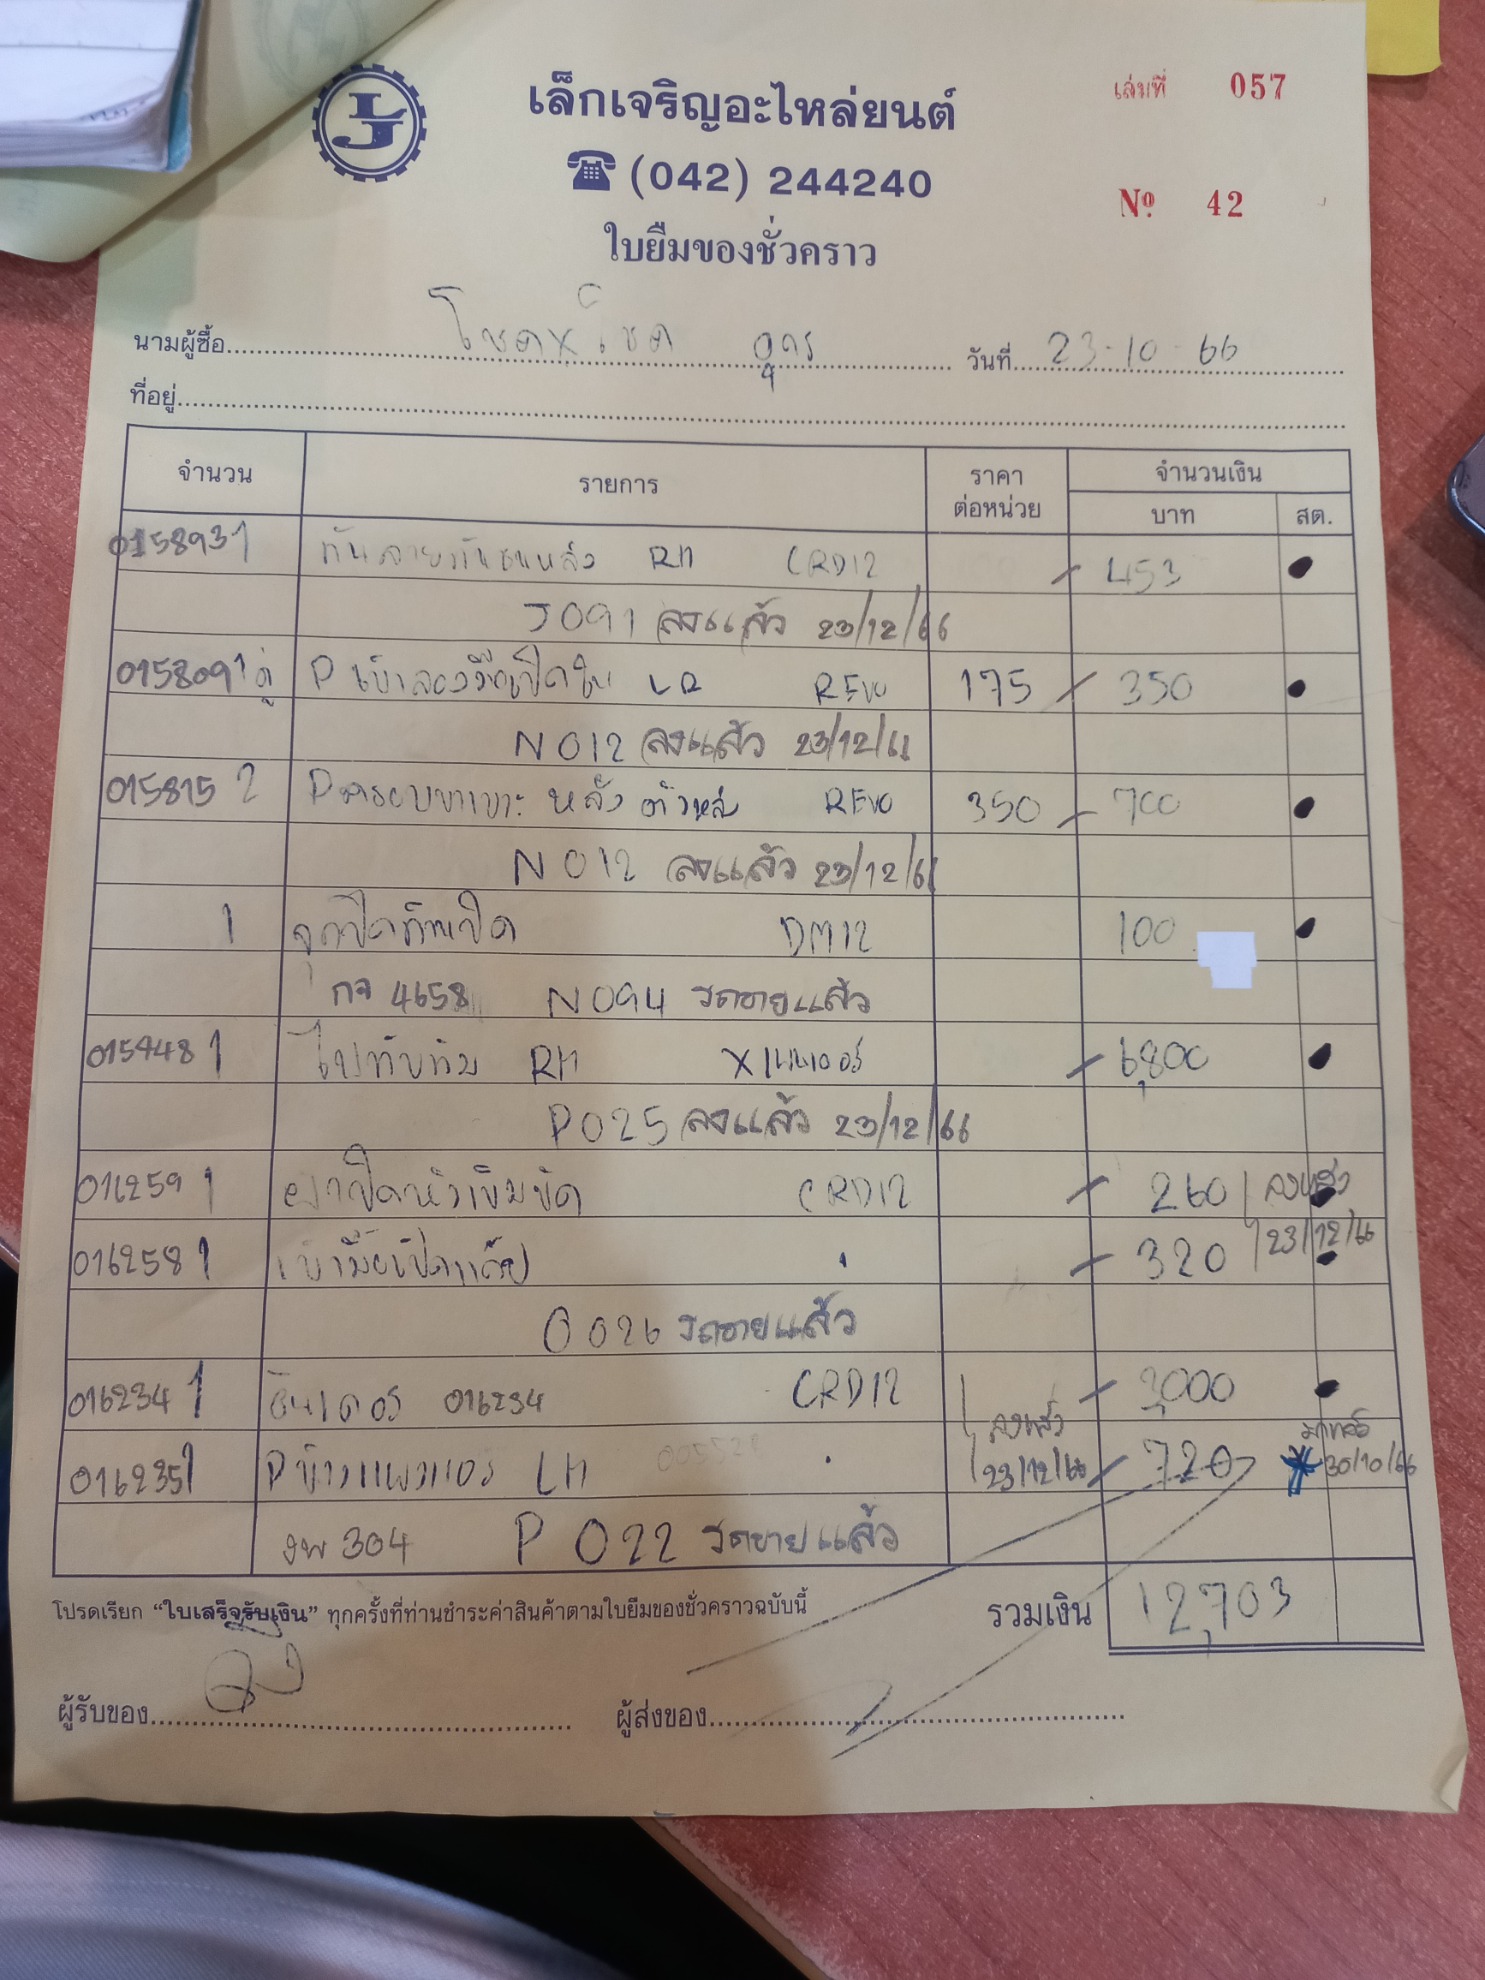 LJ
เล็กเจริญอะไหล่ยนต์
เล่มที่ 057
(042) 244240
Nº 42
ใบยืมของชั่วคราว
นามผู้ซื้อ โชคXโชค อุดร วันที่ 23-10-66
ที่อยู่
จำนวน รายการ ราคาต่อหน่วย จำนวนเงิน
บาท สต.
015893 1 RH CRD12 453
J091 ลงแล้ว 23/12/66
015809 1 คู่ P เบ้ารองมือเปิดใน LR REVO 175 350
N012 ลงแล้ว 23/12/66
015815 2 P ครอบขาเบาะ หลัง ตัวหลัง REVO 350 700
N012 ลงแล้ว 23/12/66
1 DM12 100
กจ 4658 N094 รถขายแล้ว
015948 1 ไฟทับทิม RH Xเทนเดอร์ 6,800
P025 ลงแล้ว 23/12/66
016259 1 ฝาปิดหัวเข็มขัด CRD12 260 ลงแล้ว
016258 1 320 23/12/66
O026 รถขายแล้ว
016234 1 016234 CRD12 3,000
ลงแล้ว
016235 1 P LH 005528 23/12/66 720 มาแล้ว 30/10/66
งพ 304 P 022 รถขายแล้ว
โปรดเรียก “ใบเสร็จรับเงิน” ทุกครั้งที่ท่านชำระค่าสินค้าตามใบยืมของชั่วคราวฉบับนี้ รวมเงิน 12,703
ผู้รับของ ผู้ส่งของ